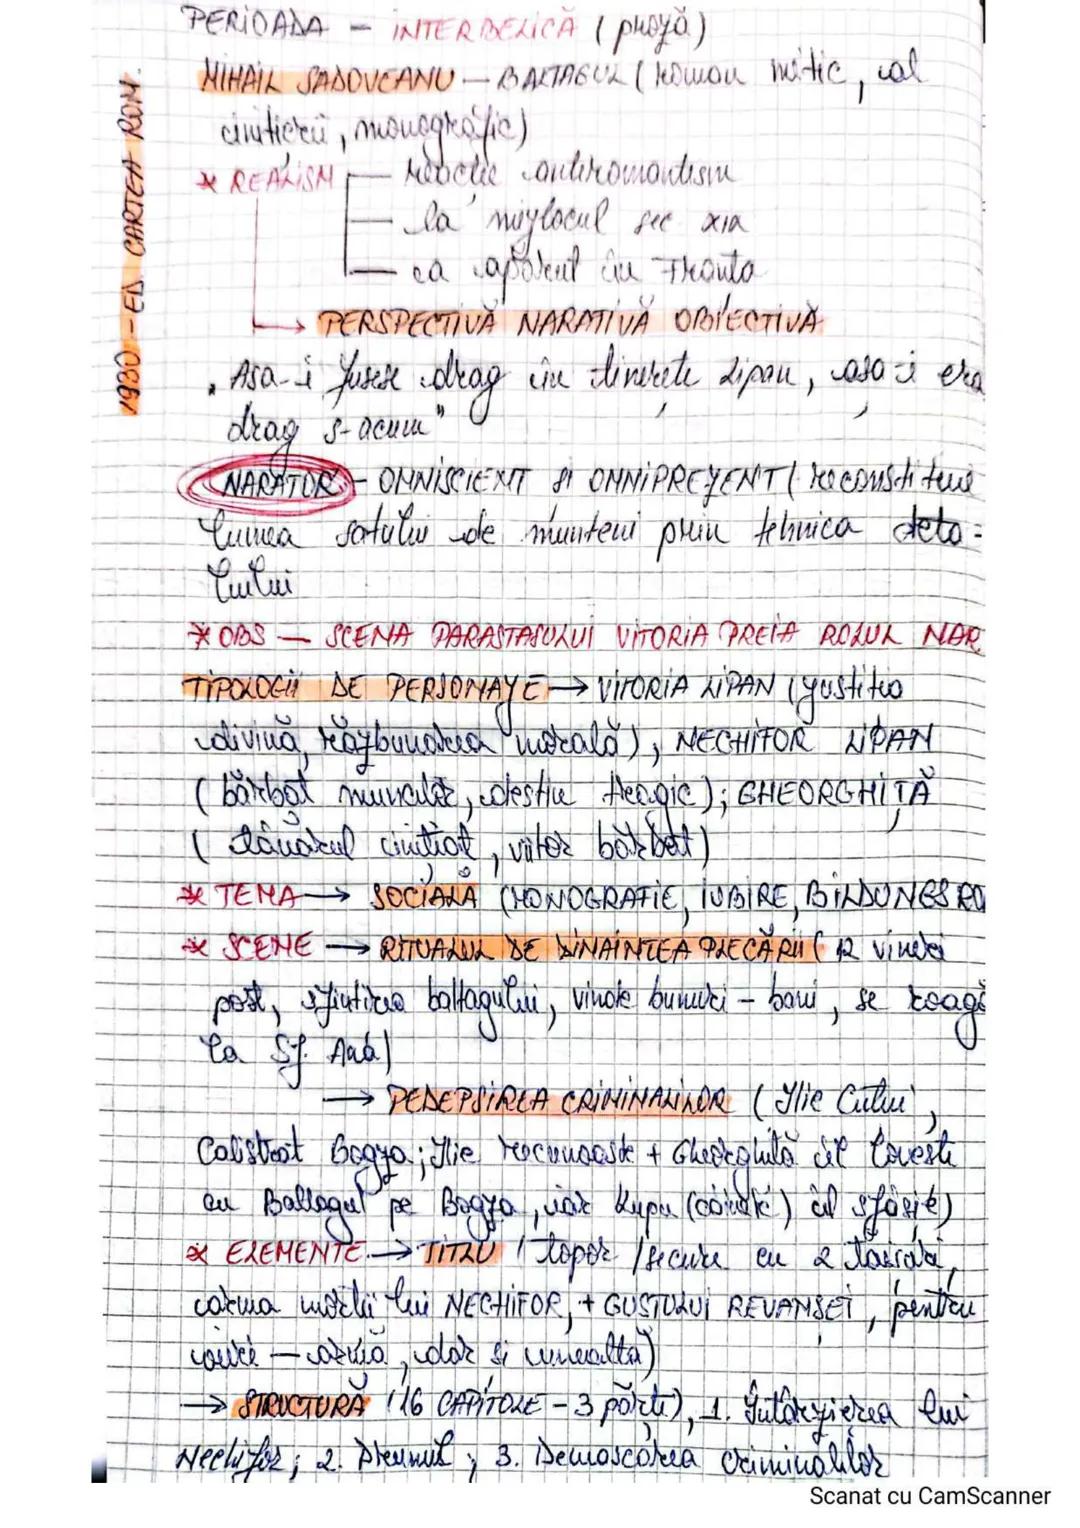 PERIOADA – INTERBELICĂ (proză)
MIHAIL SADOVEANU – BALTAGUL (roman mitic, al
inițierii, monografic)
1930 - ED. CARTEA ROM.
* REALISM — reacție antiromantism
— la mijlocul sec XIX
— ca apărut în Franța
→ PERSPECTIVĂ NARATIVĂ OBIECTIVĂ
„Așa-i fusese drag în tinerețe Lipan, așa-i era
drag ș-acum"
NARATOR – OMNISCIENT ȘI OMNIPREZENT (reconstituie
lumea satului de munteni prin tehnica deta-
liului
* OBS – SCENA PARASTASULUI VITORIA PREIA ROLUL NAR
TIPOLOGII DE PERSONAJE → VITORIA LIPAN (justiția
divină, răzbunarea morală), NECHIFOR LIPAN
(bărbat muncitor, destin tragic); GHEORGHIȚĂ
(tânărul inițiat, viitor bărbat)
* TEMA → SOCIALĂ (MONOGRAFIE, IUBIRE, BILDUNGSRO
* SCENE → RITUALUL DE DINAINTEA PLECĂRII (12 vineri
post, sfințirea baltagului, vinde bunuri – bani, se roagă
la Sf. Ana)
→ PEDEPSIREA CRIMINALILOR (Ilie Cuțui,
Calistrat Bogza; Ilie recunoaște + Gheorghiță îl lovește
cu Baltagul pe Bogza, iar Lupu (câinele) îl sfâșie)
* ELEMENTE → TITLU (topor / secure cu 2 tăișuri,
arma morții lui NECHIFOR, + GUSTULUI REVANȘEI, pentru
– armă, dar și unealtă)
→ STRUCTURĂ (16 CAPITOLE – 3 părți), 1. Întârzierea lui
Nechifor; 2. Drumul; 3. Demascarea criminalilor
Scanat cu CamScanner